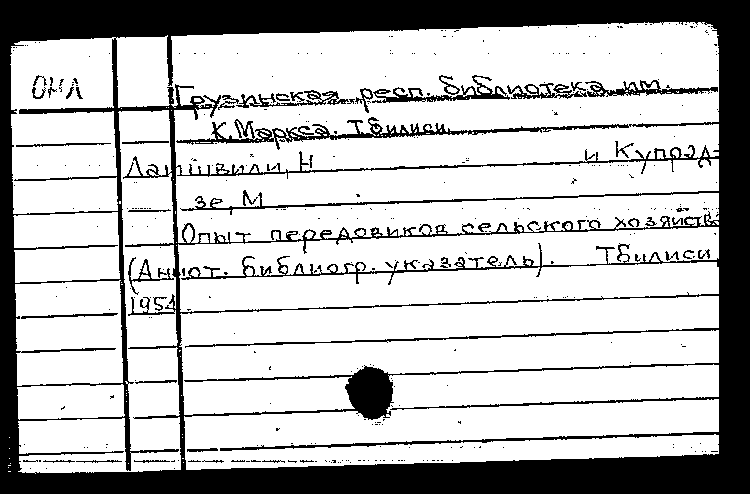 ОНЛ
Грузинская респ. библиотека им.
К.Маркса. Тбилиси.
Лапшвили, Н и Купрад-
зе, М
Опыт передовиков сельского хозяйств
(Аннот. библиогр. указатель). Тбилиси,
1951